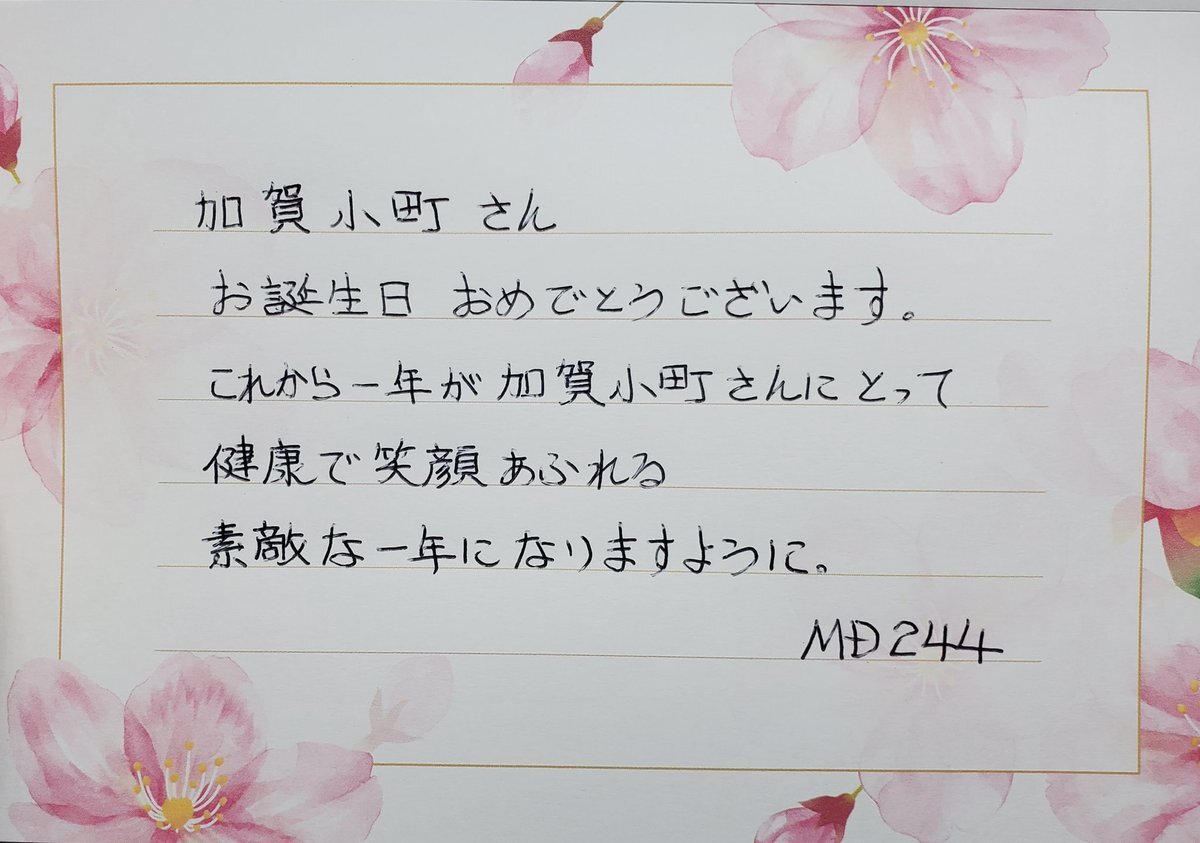 加賀小町さん
お誕生日 おめでとうございます。
これから一年が加賀小町さんにとって
健康で笑顔あふれる
素敵な一年になりますように。
MD244